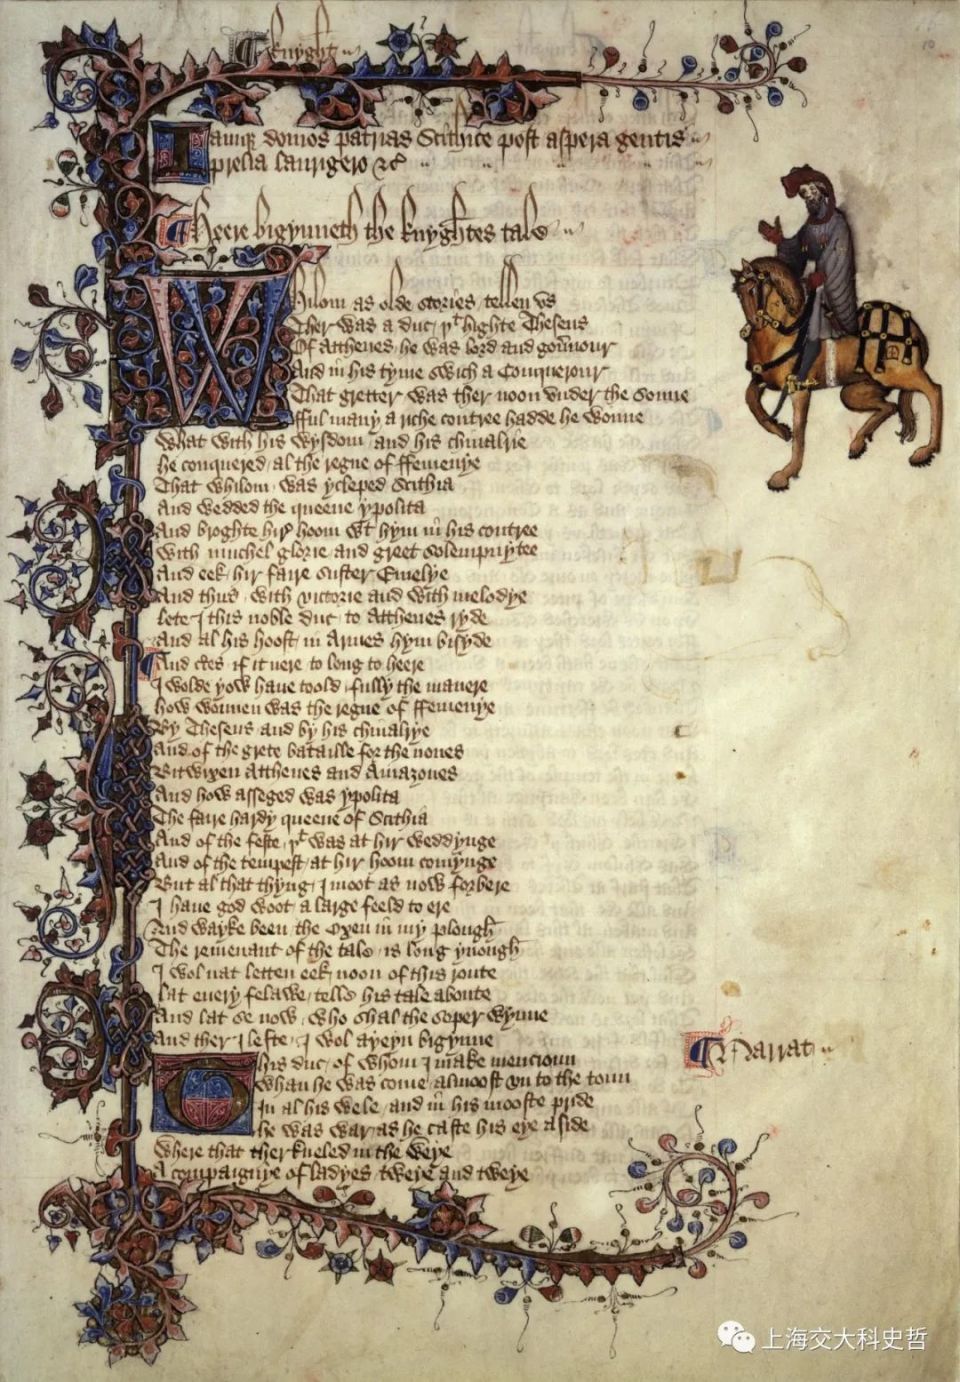 Knyght
Iamque domos patrias Scithice post aspera gentis
prelia laurigero &c
Heere bigynneth the knyghtes tale
Whilom as olde stories tellen us
Ther was a duc þt highte Theseus
Of Atthenes he was lord and gou̅nour
And in his tyme swich a Conquerour
That gretter was ther noon vnder the sonne
fful many a riche contree hadde he wonne
What with his wysdom and his chiualrie
he conquered al the regne of ffemenye
That whilom was ycleped Scithia
And wedded the queene ypolita
And broghte hir hoom wt hym in his contree
With muchel glorie and greet solempnytee
And eek hir faire suster Emelye
And thus with victorie and with melodye
lete I this noble duc to Atthenes ryde
And al his hoost in Armes hym bisyde
And certes if it nere to long to heere
I wolde yow haue toold fully the manere
how wonnen was the regne of ffemenye
By Theseus and by his chiualrye
And of the grete bataille for the nones
Bitwixen Atthenes and Amazones
And how asseged was ypolita
The faire hardy queene of Scithia
And of the feste þt was at hir weddynge
And of the tempest at hir hoom comynge
But al that thyng I moot as now forbere
I haue god woot a large feeld to ere
And wayke been the Oxen in my plough
The remenant of the tale is long ynough
I wol nat letten eek noon of this route
lat euery felawe telle his tale aboute
And lat se now who shal the soper wynne
And ther I lefte I wol ayeyn bigynne
Narrat
This duc of whom I make mencioun
Whan he was come almoost vn to the toun
In al his wele and in his mooste pride
he was war as he caste his eye aside
Where that ther kneled in the weye
A compaignye of ladyes tweye and tweye
上海交大科史哲